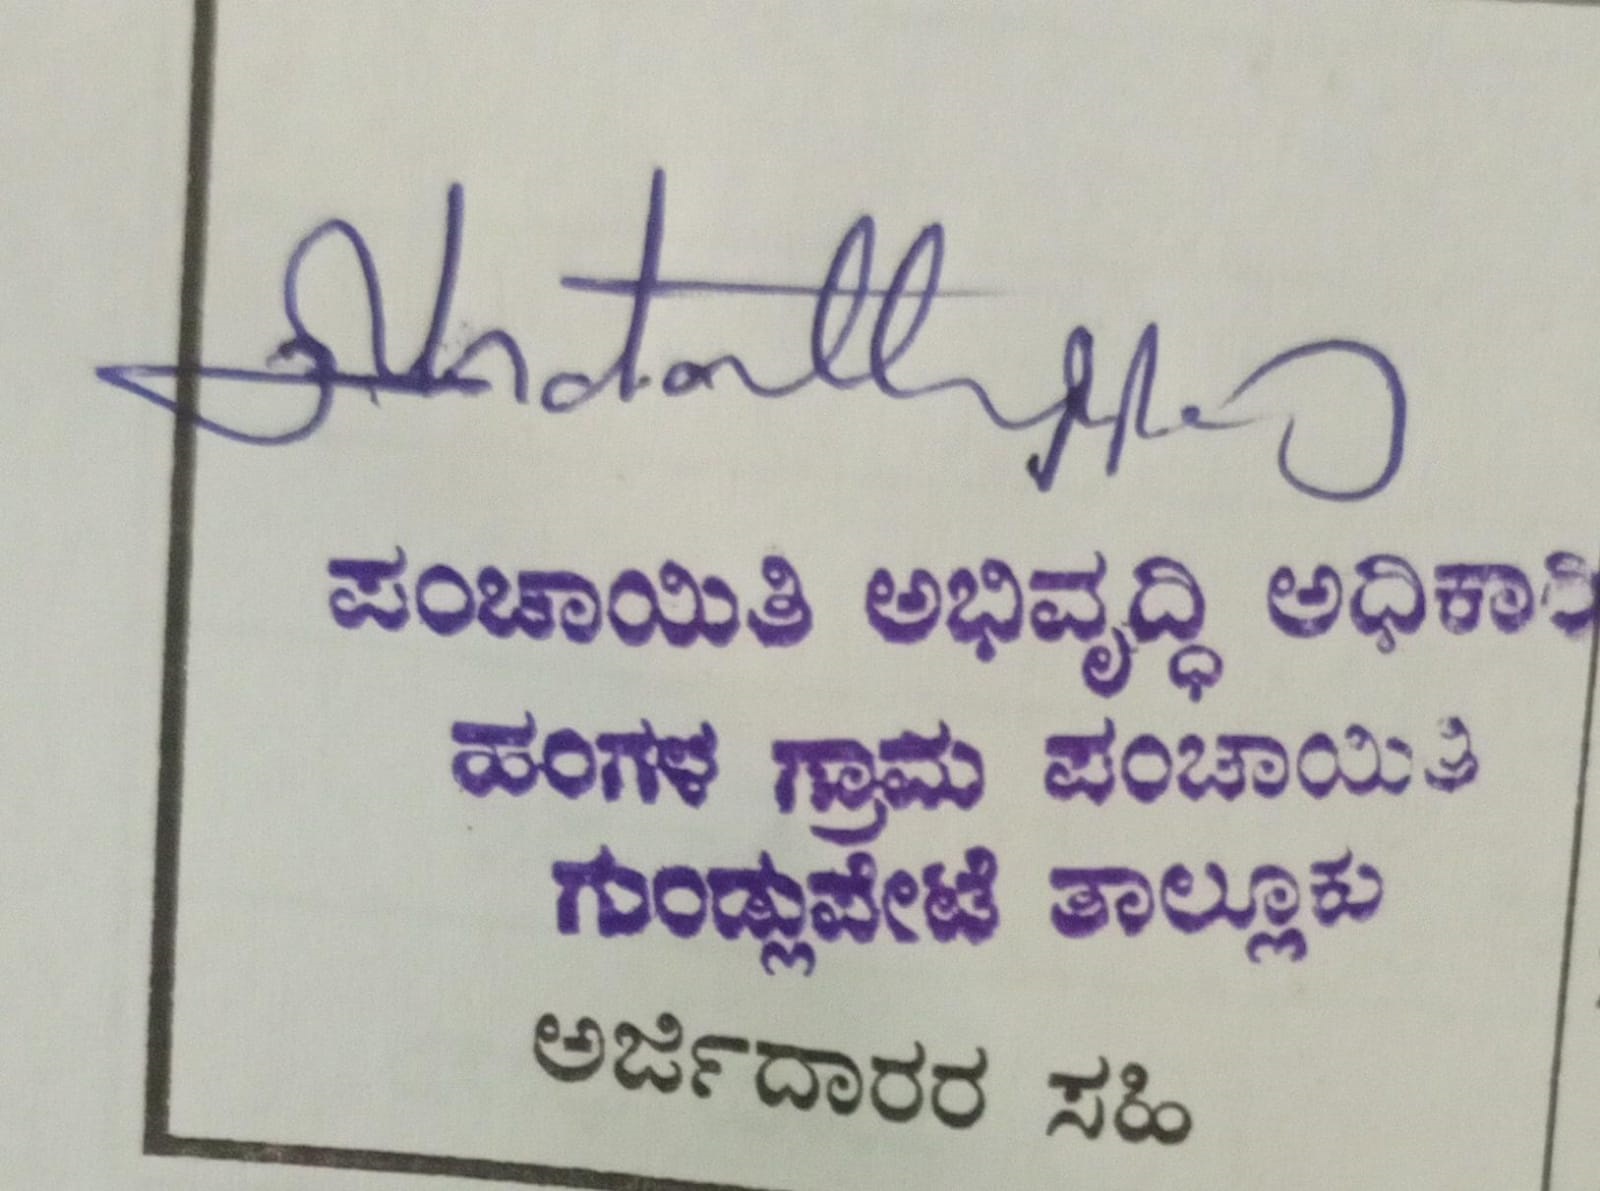 ಪಂಚಾಯಿತಿ ಅಭಿವೃದ್ಧಿ ಅಧಿಕಾರಿ
ಹಂಗಳ ಗ್ರಾಮ ಪಂಚಾಯಿತಿ
ಗುಂಡ್ಲುಪೇಟೆ ತಾಲ್ಲೂಕು
ಅರ್ಜಿದಾರರ ಸಹಿ